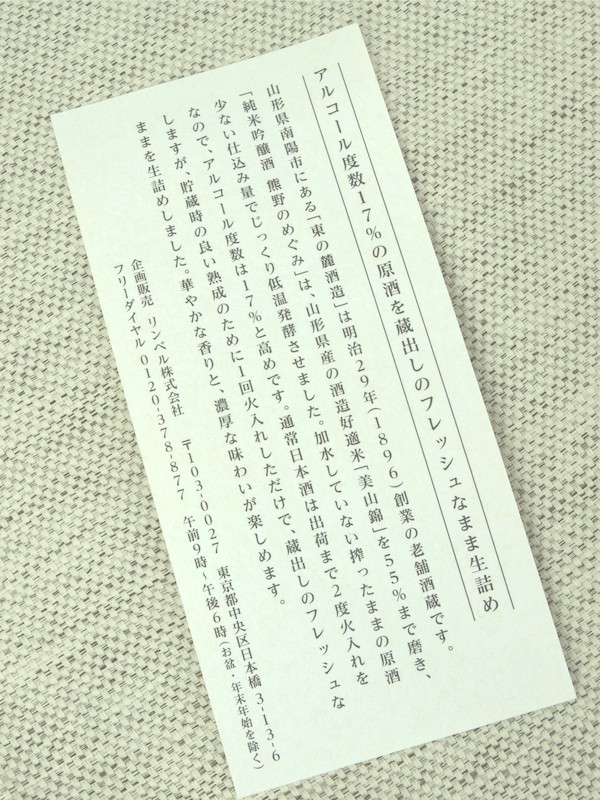 アルコール度数17%の原酒を蔵出しのフレッシュなまま生詰め
山形県南陽市にある「東の麓酒造」は明治29年(1896)創業の老舗酒蔵です。
「純米吟醸酒 熊野のめぐみ」は、山形県産の酒造好適米「美山錦」を55%まで磨き、
少ない仕込み量でじっくり低温発酵させました。加水していない搾ったままの原酒
なので、アルコール度数は17%と高めです。通常日本酒は出荷まで2度火入れを
しますが、貯蔵時の良い熟成のために1回火入れしただけで、蔵出しのフレッシュな
ままを生詰めしました。華やかな香りと、濃厚な味わいが楽しめます。
企画販売 リンベル株式会社 〒103-0027 東京都中央区日本橋3-13-6
フリーダイヤル 0120-378-877 午前9時~午後6時(お盆・年末年始を除く)